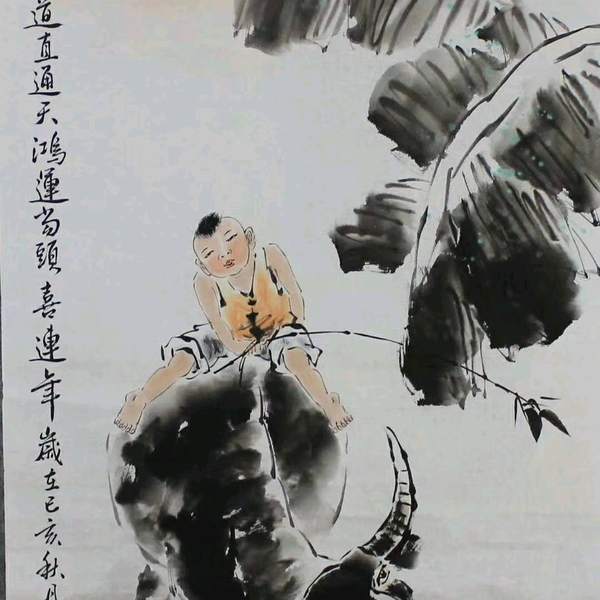 道直通天鸿運当頭喜連年歲在己亥秋月